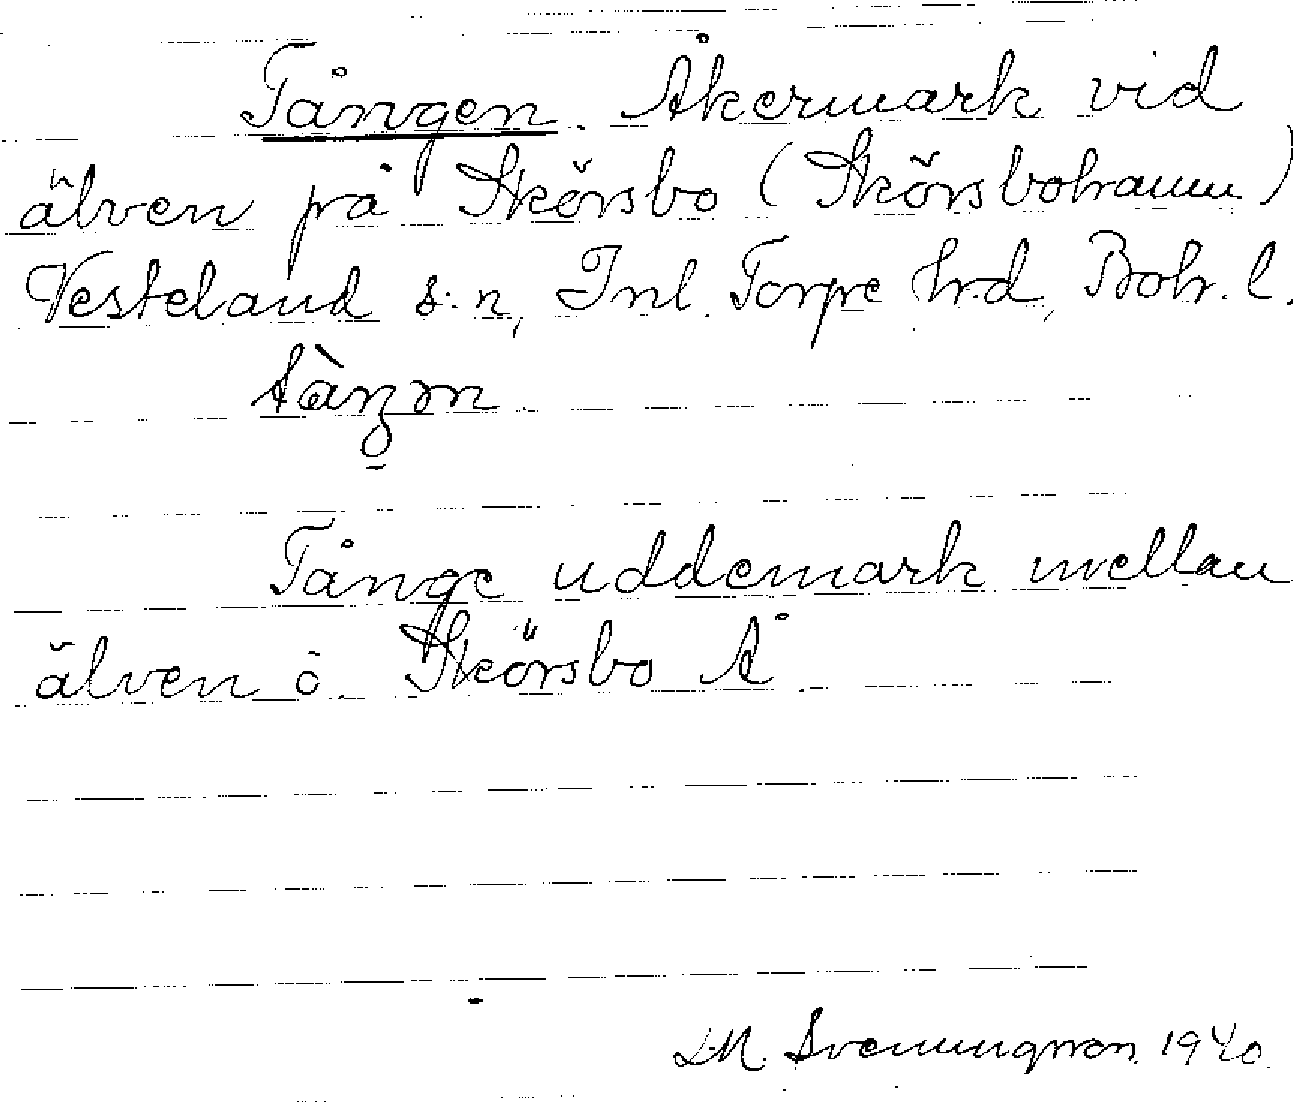 Tången. Åkermark vid
älven på Skörsbo (Skörsbohamn)
Vesteland s:n, Inl. Torpe hrd, Boh. l.
Tånge uddemark mellan
älven ö Skörsbo Å
L.M. Svenungsson 1940